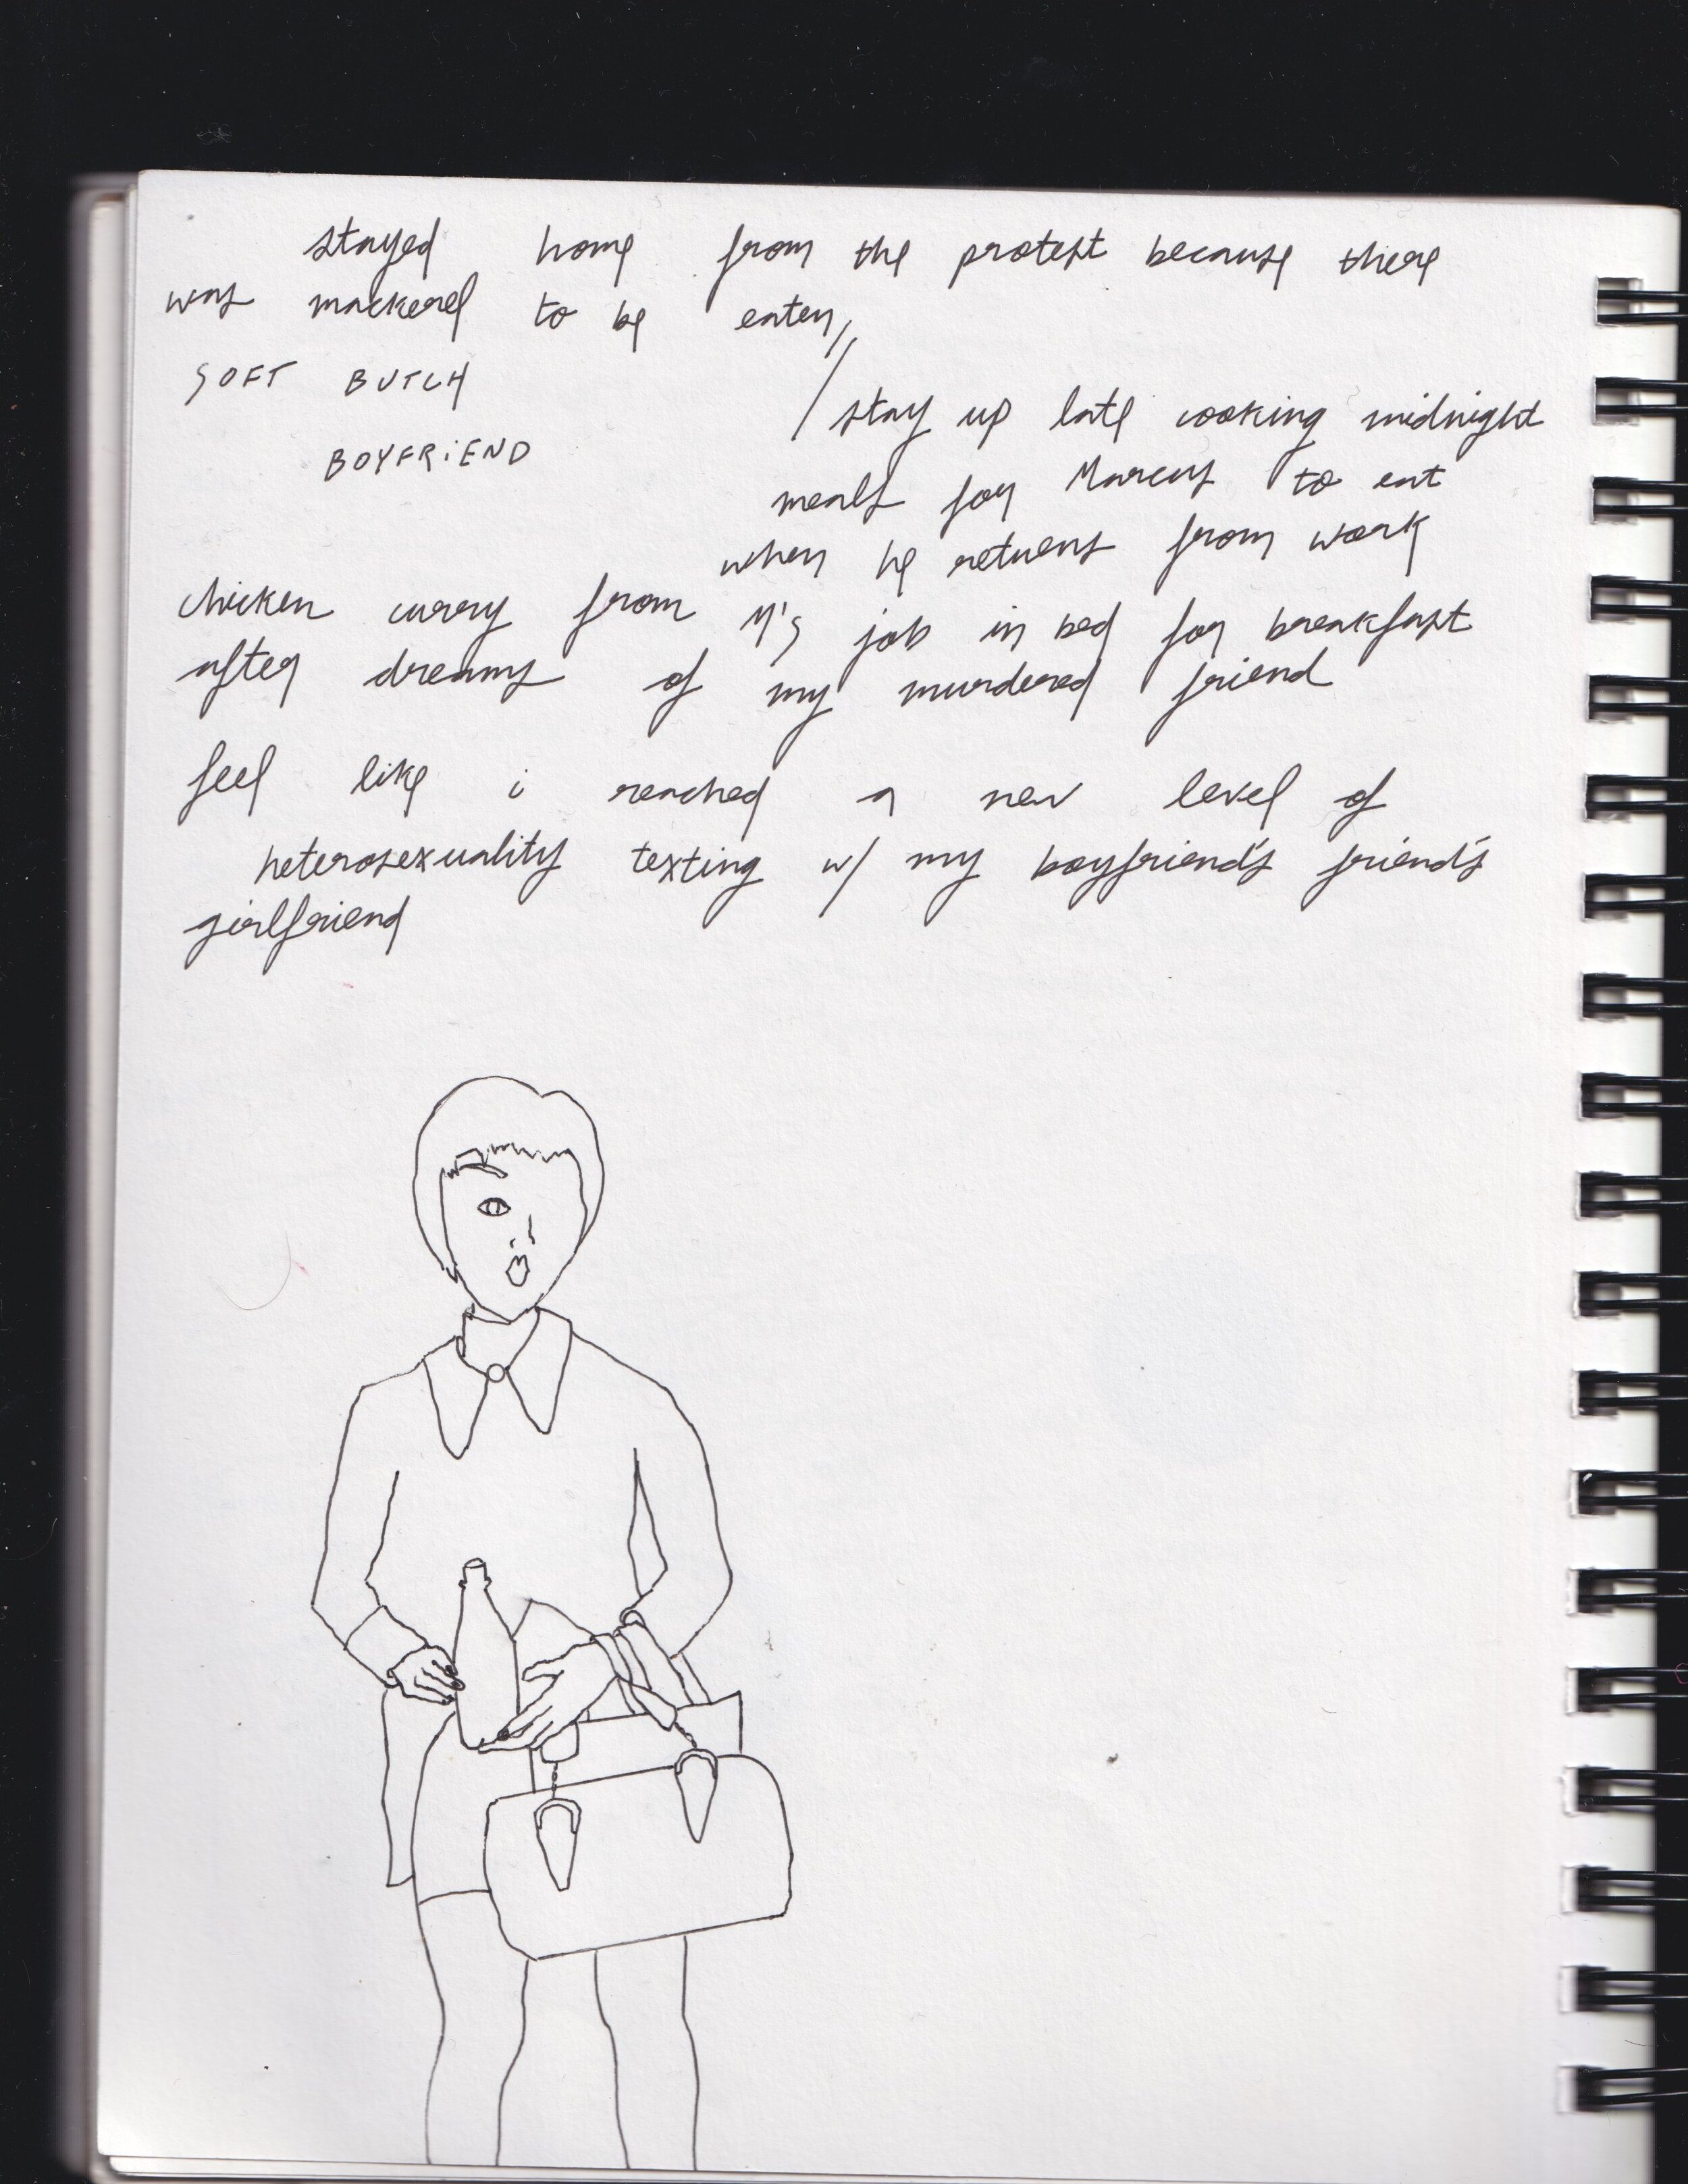 stayed home from the protest because there
was mackerel to be eaten,
SOFT BUTCH
BOYFRiEND
/ stay up late cooking midnight
meals for Marcus to eat
when he returns from work
chicken curry from M's job in bed for breakfast
after dreams of my murdered friend
feel like i reached a new level of
heterosexuality texting w/ my boyfriend's friend's
girlfriend